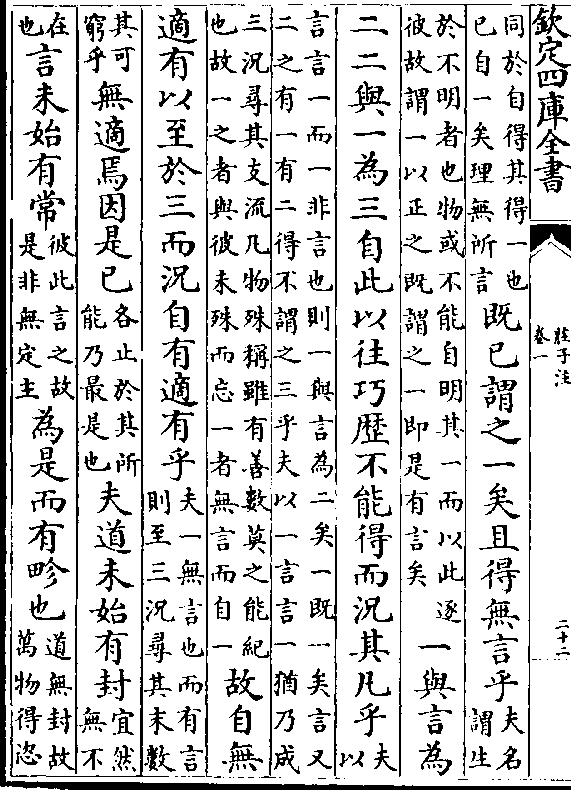 欽定四庫全書
莊子注
卷一
二十二
同於自得其得一也
已自一矣理無所言
既已謂之一矣且得無言乎
夫名
謂生
於不明者也物或不能自明其一而以此逐
彼故謂一以正之既謂之一即是有言矣
一與言為
二二與一為三自此以往巧歴不能得而況其凡乎
夫
以
言言一而一非言也則一與言為二矣一既一矣言又
二之有一有二得不謂之三乎夫以一言言一猶乃成
三況尋其支流凡物殊稱雖有善數莫之能紀
也故一之者與彼未殊而忘一者無言而自一
故自無
適有以至於三而況自有適有乎
夫一無言也而有言
則至三況尋其末數
其可
窮乎
無適焉因是已
各止於其所
能乃最是也
夫道未始有封
宜然
無不
在
也
言未始有常
彼此言之故
是非無定主
為是而有畛也
道無封故
萬物得恣